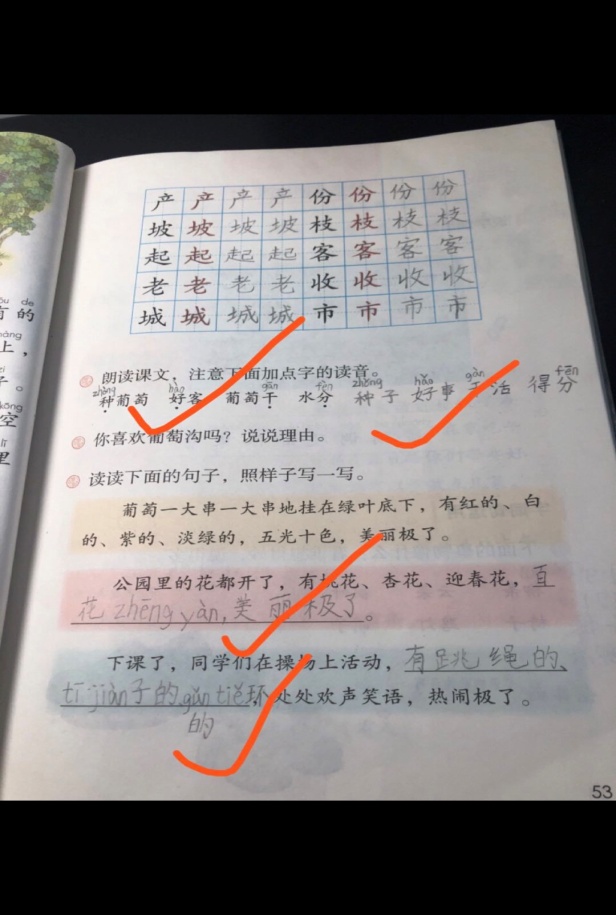 产 产 产 产 份 份 份 份
坡 坡 坡 坡 枝 枝 枝 枝
起 起 起 起 客 客 客 客
老 老 老 老 收 收 收 收
城 城 城 城 市 市 市 市
朗读课文，注意下面加点字的读音。
zhòng hào gān fèn zhǒng hǎo gàn fēn
种葡萄 好客 葡萄干 水分 种子 好事 干活 得分
你喜欢葡萄沟吗？说说理由。
读读下面的句子，照样子写一写。
葡萄一大串一大串地挂在绿叶底下，有红的、白
的、紫的、淡绿的，五光十色，美丽极了。
公园里的花都开了，有桃花、杏花、迎春花，百
花 zhēng yàn，美丽极了。
下课了，同学们在操场上活动，有跳绳的、
tī jiàn子的 gǔn tiě环 处处欢声笑语，热闹极了。
的
de
前的
上，
子。
空
lǐ
里
53